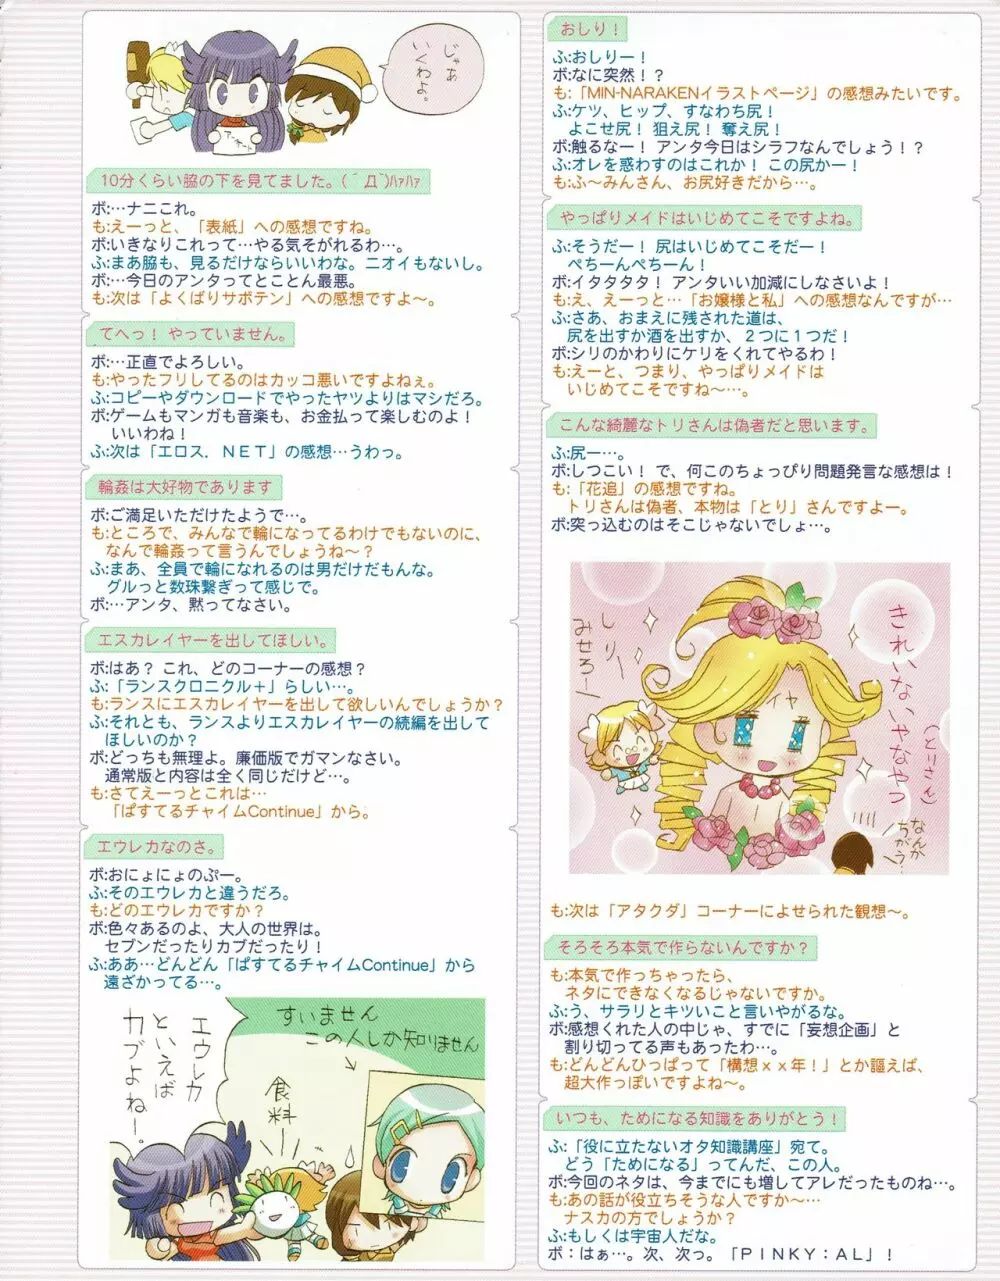 じゃあ
いくわよ。
アンケート
10分くらい脇の下を見てました。(´Д`)ﾊｧﾊｧ
ボ:…ナニこれ。
も:えーっと、「表紙」への感想ですね。
ボ:いきなりこれって…やる気そがれるわ…。
ふ:まあ脇も、見るだけならいいわな。ニオイもないし。
ボ:…今日のアンタってとことん最悪。
も:次は「よくばりサボテン」への感想ですよ〜。
てへっ！やっていません。
ボ:…正直でよろしい。
も:やったフリしてるのはカッコ悪いですよねぇ。
ふ:コピーやダウンロードでやったヤツよりはマシだろ。
ボ:ゲームもマンガも音楽も、お金払って楽しむのよ！
いいわね！
ふ:次は「エロス．ＮＥＴ」の感想…うわっ。
輪姦は大好物であります
ボ:ご満足いただけたようで…。
も:ところで、みんなで輪になってるわけでもないのに、
なんで輪姦って言うんでしょうね〜？
ふ:まあ、全員で輪になれるのは男だけだもんな。
グルっと数珠繋ぎって感じで。
ボ:…アンタ、黙ってなさい。
エスカレイヤーを出してほしい。
ボ:はあ？ これ、どのコーナーの感想？
ふ:「ランスクロニクル＋」らしい…。
も:ランスにエスカレイヤーを出して欲しいんでしょうか？
ふ:それとも、ランスよりエスカレイヤーの続編を出して
ほしいのか？
ボ:どっちも無理よ。廉価版でガマンなさい。
通常版と内容は全く同じだけど…。
も:さてえーっとこれは…
「ぱすてるチャイムContinue」から。
エウレカなのさ。
ボ:おにょにょのぷー。
ふ:そのエウレカと違うだろ。
も:どのエウレカですか？
ボ:色々あるのよ、大人の世界は。
セブンだったりカブだったり！
ふ:ああ…どんどん「ぱすてるチャイムContinue」から
遠ざかってる…。
エウレカ
といえば
カブよねー。
すいません
この人しか知りません
食料ー
おしり！
ふ:おしりー！
ボ:なに突然！？
も:「MIN-NARAKENイラストページ」の感想みたいです。
ふ:ケツ、ヒップ、すなわち尻！
よこせ尻！ 狙え尻！ 奪え尻！
ボ:触るなー！ アンタ今日はシラフなんでしょう！？
ふ:オレを惑わすのはこれか！ この尻かー！
も:ふ〜みんさん、お尻好きだから…。
やっぱりメイドはいじめてこそですよね。
ふ:そうだー！ 尻はいじめてこそだー！
ぺちーんぺちーん！
ボ:イタタタタ！ アンタいい加減にしなさいよ！
も:え、えーっと…「お嬢様と私」への感想なんですが…
ふ:さあ、おまえに残された道は、
尻を出すか酒を出すか、２つに１つだ！
ボ:シリのかわりにケリをくれてやるわ！
も:えーと、つまり、やっぱりメイドは
いじめてこそですね〜…。
こんな綺麗なトリさんは偽者だと思います。
ふ:尻ー…。
ボ:しつこい！ で、何このちょっぴり問題発言な感想は！
も:「花追」の感想ですね。
トリさんは偽者、本物は「とり」さんですよー。
ボ:突っ込むのはそこじゃないでしょ…。
きれいないやなやつ
(とりさん)
しりー
みせろー
イヤ
なんか
ちがう…
も:次は「アタクダ」コーナーによせられた観想〜。
そろそろ本気で作らないんですか？
も:本気で作っちゃったら、
ネタにできなくなるじゃないですか。
ふ:う、サラリとキツいこと言いやがるな。
ボ:感想くれた人の中じゃ、すでに「妄想企画」と
割り切ってる声もあったわ…。
も:どんどんひっぱって「構想ｘｘ年！」とか謳えば、
超大作っぽいですよね〜。
いつも、ためになる知識をありがとう！
ふ:「役に立たないオタ知識講座」宛て。
どう「ためになる」ってんだ、この人。
ボ:今回のネタは、今までにも増してアレだったものね…。
も:あの話が役立ちそうな人ですか〜…
ナスカの方でしょうか？
ふ:もしくは宇宙人だな。
ボ：はぁ…。次、次っ。「ＰＩＮＫＹ：ＡＬ」！